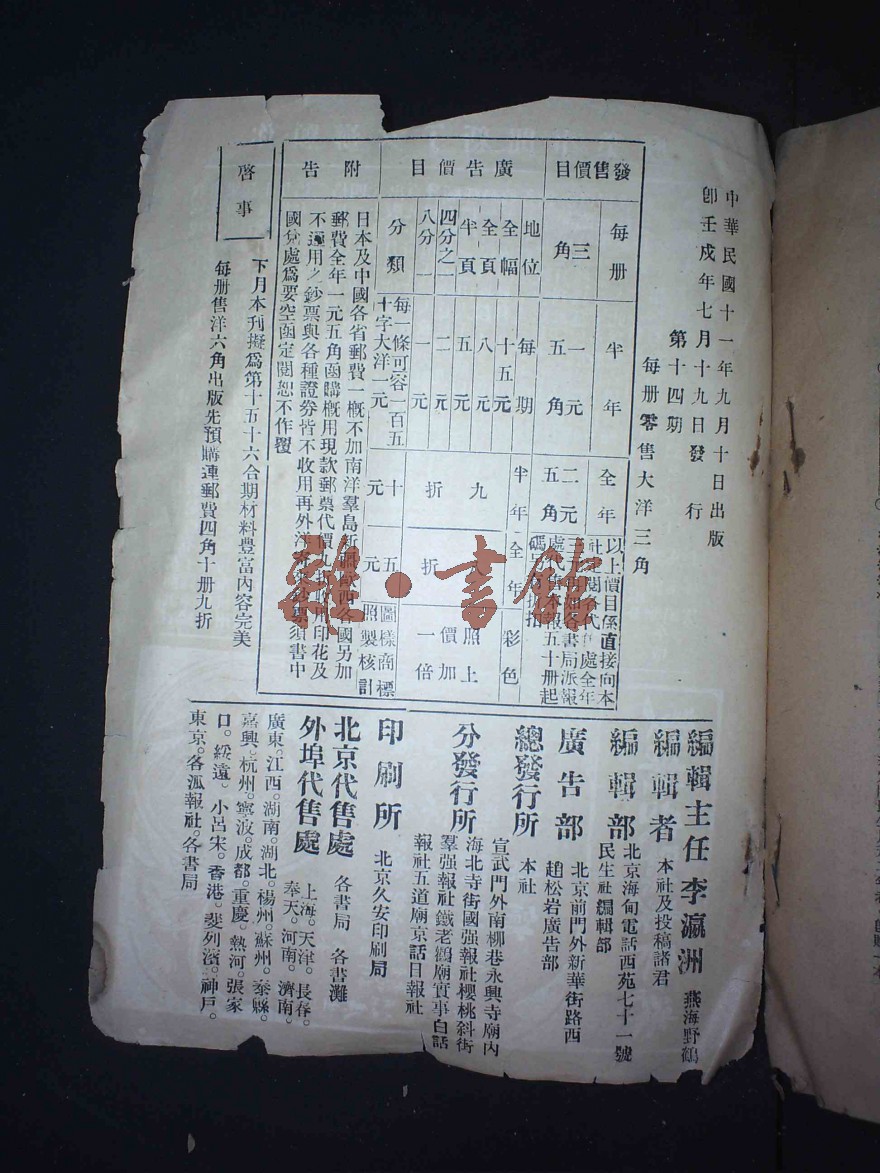 中華民國十一年九月十日出版
卽壬戌年七月十九日發行
第十四期
每册零售大洋三角
發售價目
每册 半年 全年
三角 一元五角 二元五角
以上價目係直接向本
社
處全年
各書局派報
處
本報五十册起
碼
廣告價目
地位 每期 半年 全年 彩色
全幅 十五元
全頁 八元
半頁 五元
四分之一 二元
八分一 一元
九折
折
照上價加一倍
分類
每一條可容一百五
十字大洋一元
十元
五元
圖樣商標
照製核計
附告
日本及中國各省郵費一概不加南洋羣島
歐西各國另加
郵費全年一元五角函購概用現款郵票代價
印花及
不通用之鈔票與各種證券皆不收用再外洋
鈔票須書中
國兌處爲要空函定閱恕不作覆
啓事
下月本刊擬爲第十五十六合期材料豐富內容完美
每册售洋六角出版先預購連郵費四角十册九折
雜·書館
編輯主任 李瀛洲 燕海野鶴
編輯者 本社及投稿諸君
編輯部 北京海甸電話西苑七十一號
民生社編輯部
廣告部 北京前門外新華街路西
趙松岩廣告部
總發行所 本社
分發行所 宣武門外南柳巷永興寺廟內
海北寺街國強報社櫻桃斜街
羣强報社鐵老鸛廟實事白話
報社五道廟京話日報社
印刷所 北京久安印刷局
北京代售處 各書局 各書灘
外埠代售處 上海。天津。長春。
奉天。河南。濟南。
廣東。江西。湖南。湖北。楊州。蘇州。泰縣。
嘉興。杭州。寧波。成都。重慶。熱河。張家
口。綏遠。小呂宋。香港。斐列濱。神戶。
東京。各派報社。各書局